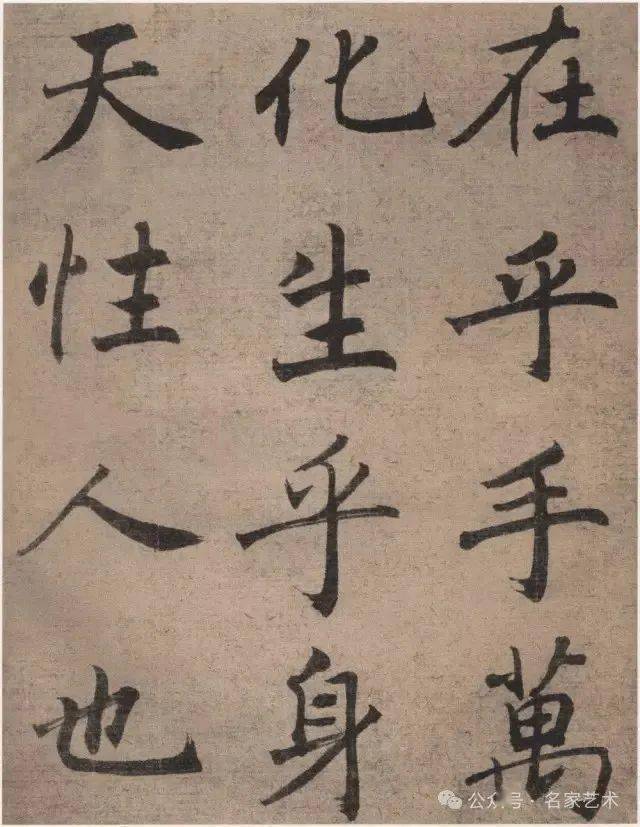 在乎手萬
化生乎身
天性人也
公众号·名家艺术